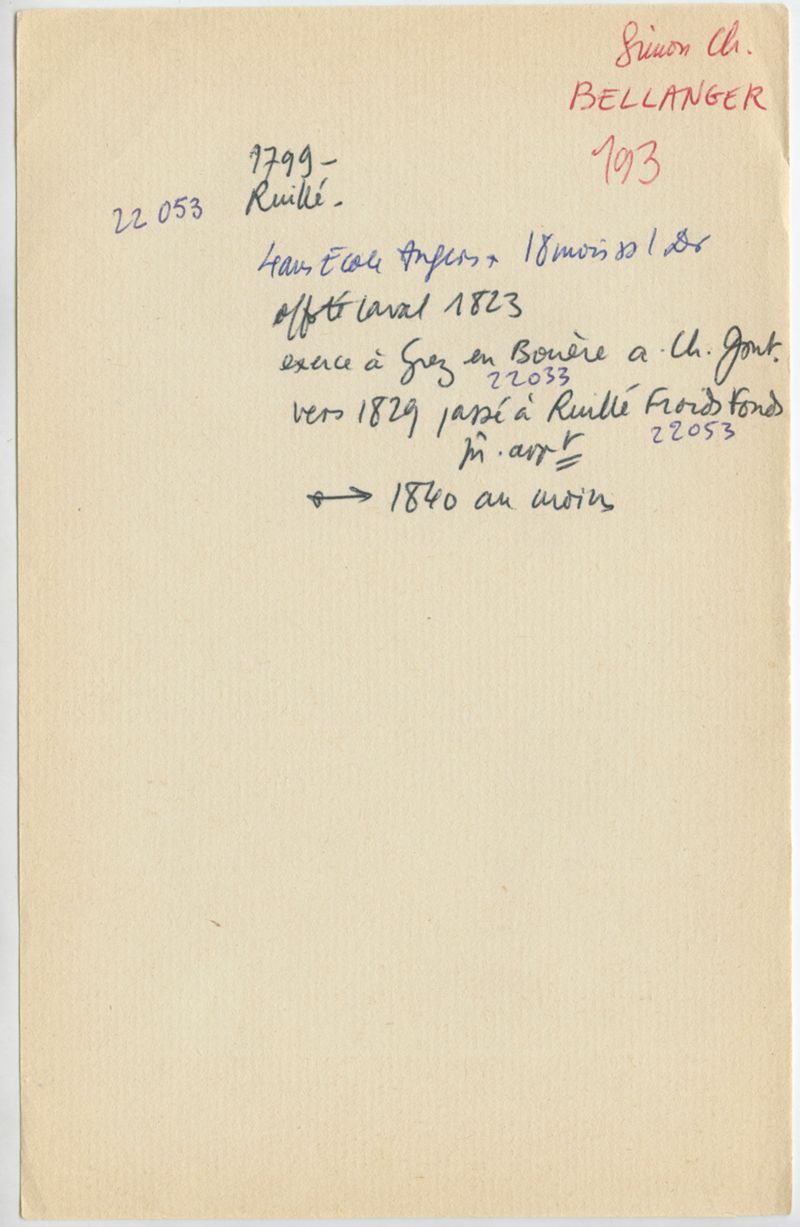 Simon Ch.
BELLANGER
193
1799 -
22 053 Ruillé.
4 ans Ecole Angers + 18 mois 1 Dr
off sté Laval 1823
exerce à Grez en Bouère a. Ch. Gont.
22033
vers 1829 passé à Ruillé Froids Fonds
22053
→ 1840 au moins